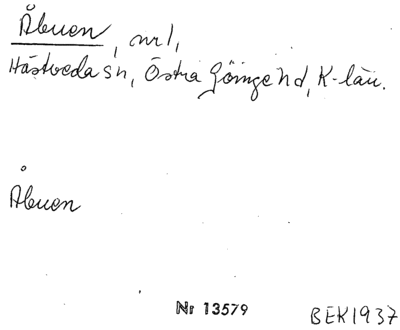 Åbuen, nr 1,
Hästveda sn, Östra Göinge hd, K-län.
Åbuen
Nr 13579
BEK1937